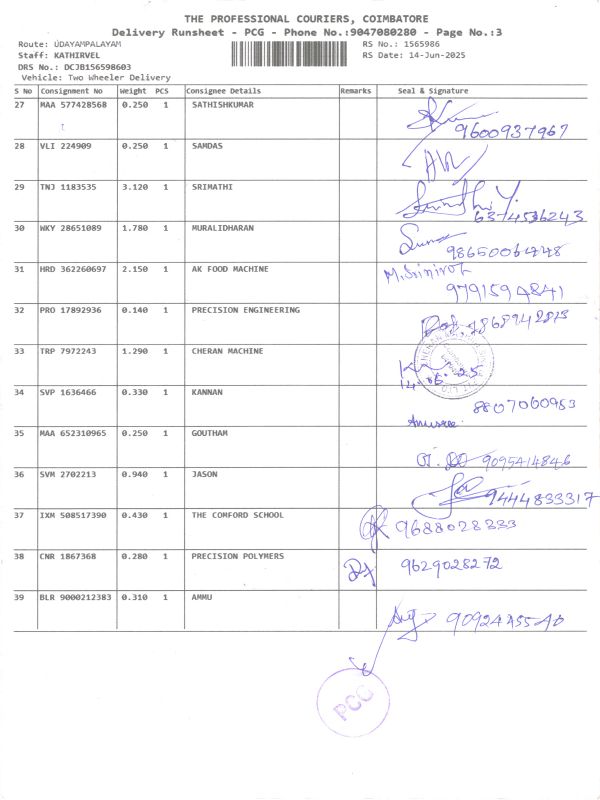 THE PROFESSIONAL COURIERS, COIMBATORE
Delivery Runsheet - PCG - Phone No.:9047080280 - Page No.:3
Route: UDAYAMPALAYAM RS No.: 1565986
Staff: KATHIRVEL RS Date: 14-Jun-2025
DRS No.: DCJB156598603
Vehicle: Two Wheeler Delivery
S No Consignment No Weight PCS Consignee Details Remarks Seal & Signature
27 MAA 577428568 0.250 1 SATHISHKUMAR
9600937967
28 VLI 224909 0.250 1 SAMDAS
29 TNJ 1183535 3.120 1 SRIMATHI
6374536243
30 WKY 28651089 1.780 1 MURALIDHARAN
31 HRD 362260697 2.150 1 AK FOOD MACHINE
9791594841
32 PRO 17892936 0.140 1 PRECISION ENGINEERING
33 TRP 7972243 1.290 1 CHERAN MACHINE
34 SVP 1636466 0.330 1 KANNAN
8807060983
35 MAA 652310965 0.250 1 GOUTHAM
9095414846
36 SVM 2702213 0.940 1 JASON
9444833317
37 IXM 508517390 0.430 1 THE COMFORD SCHOOL
9688028333
38 CNR 1867368 0.280 1 PRECISION POLYMERS
9629028272
39 BLR 9000212383 0.310 1 AMMU
PCG